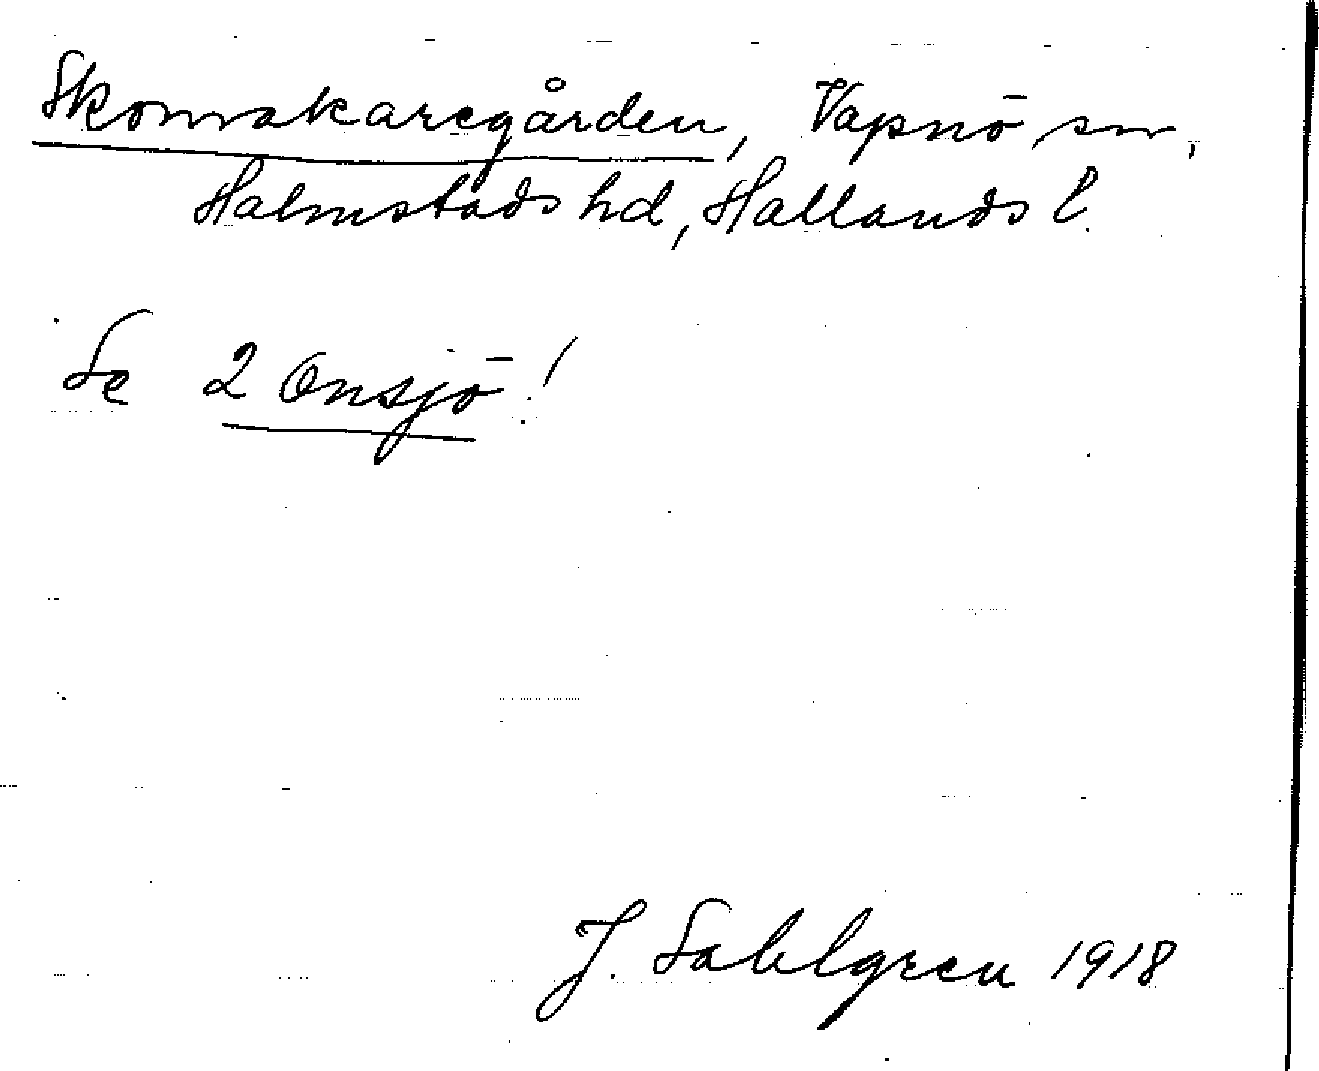 Skomakaregården, Vapnö sn,
Halmstads hd, Hallands l.
Se 2 Onsjö!
J. Sahlgren 1918